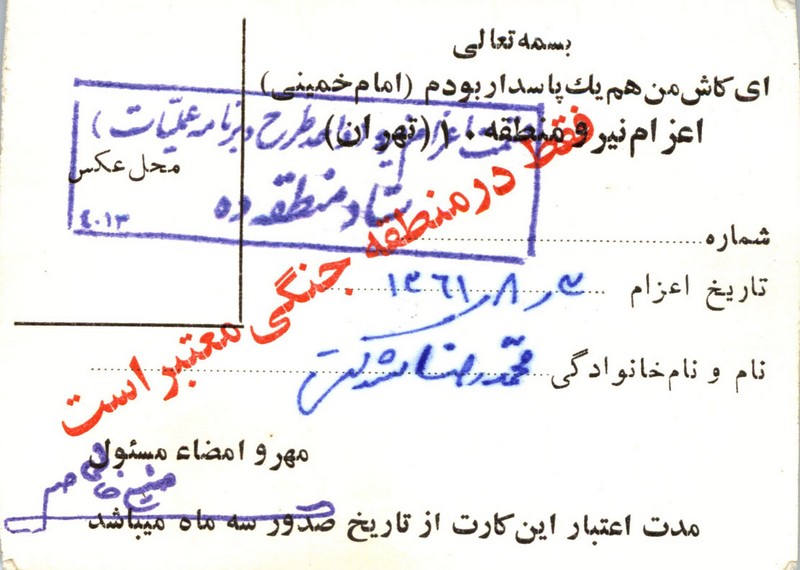 بسمه تعالی
ای کاش من هم یک پاسدار بودم (امام خمینی)
اعزام نیرو منطقه ۱۰ (تهران)
طرح و برنامه عملیات)
ستاد منطقه ده
۴۰۱۳
محل عکس
فقط در منطقه جنگی معتبر است
شماره
تاریخ اعزام ۳ ر ۸ ر ۱۳۶۱
نام و نام خانوادگی محمد رضا
مهر و امضاء مسئول
مدت اعتبار این کارت از تاریخ صدور سه ماه میباشد